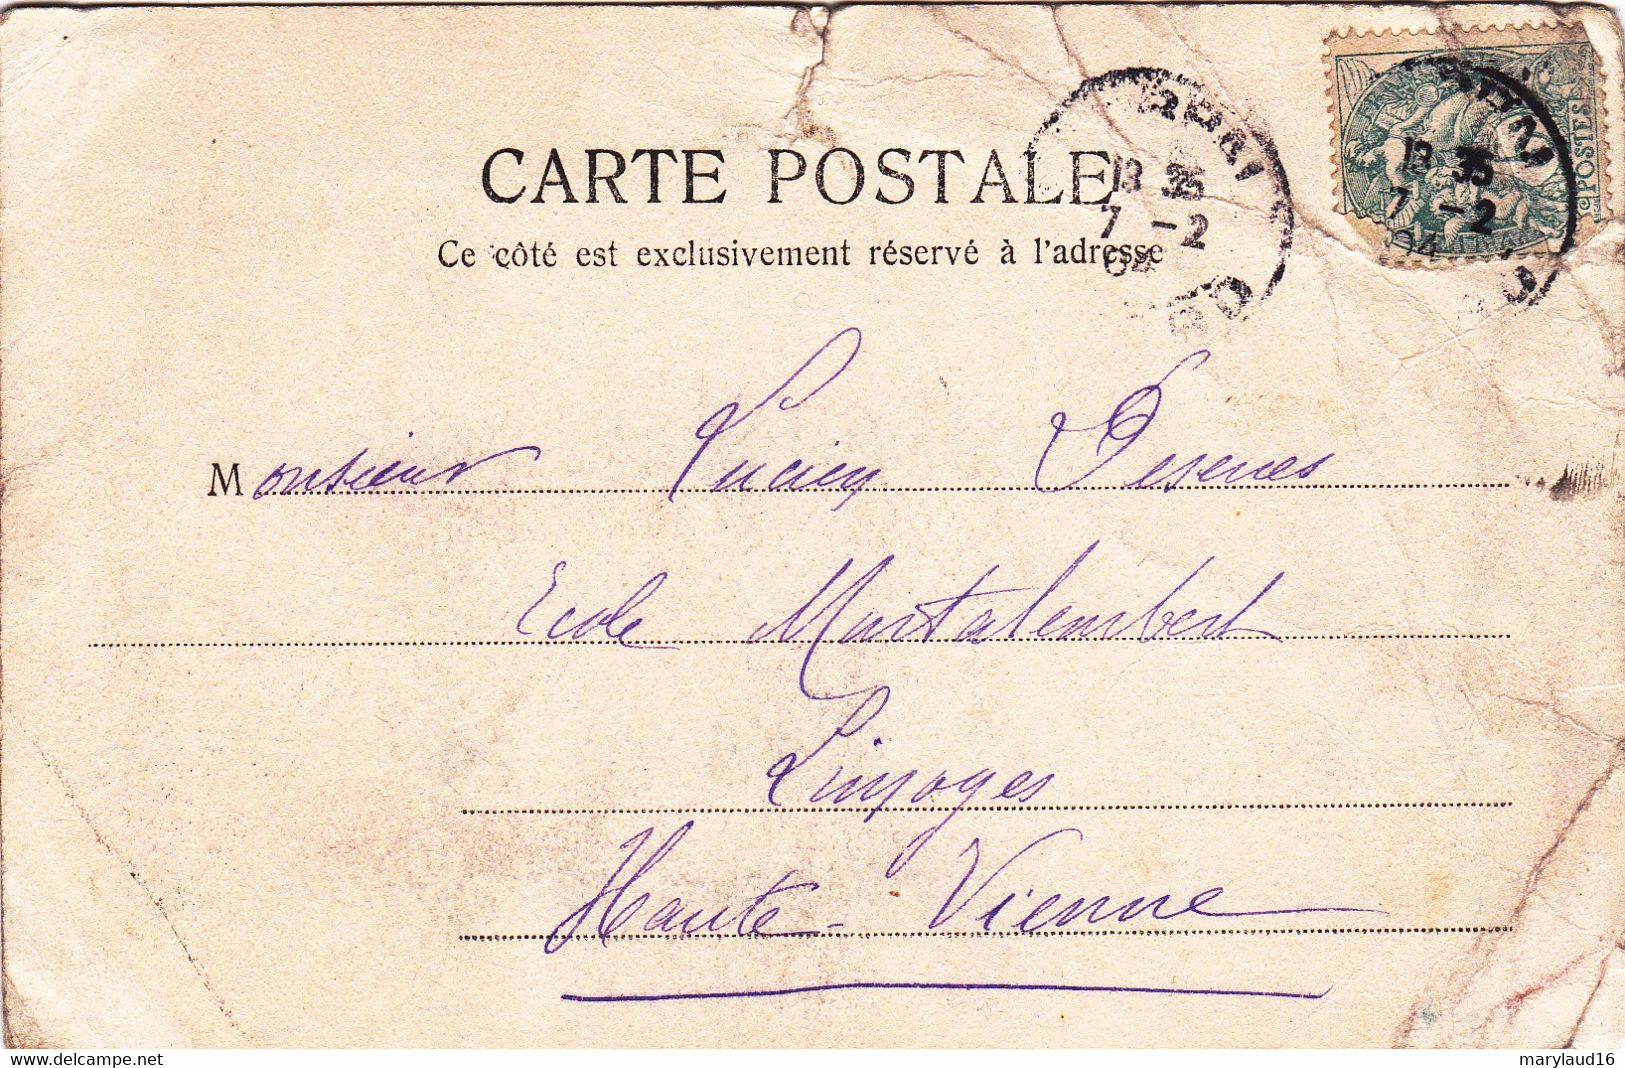 CARTE POSTALE
Ce côté est exclusivement réservé à l'adresse
13 35
7 -2
04
POSTES
13 35
7 -2
04
Monsieur Lucien
Ecole Montalembert
Limoges
Haute-Vienne
delcampe.net
marylaud16